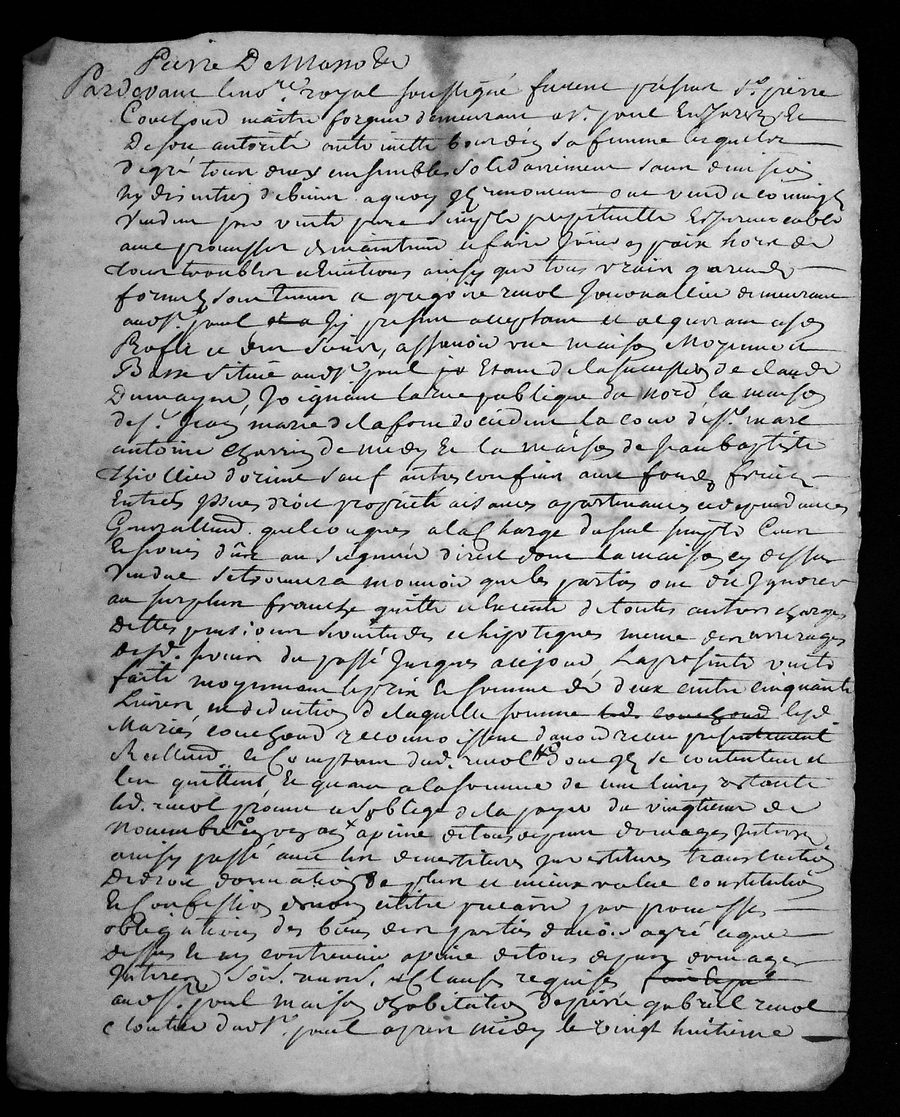 Pierre De Masso de
Pardevant le no.re royal soussigné furent présent s.r pierre
Couchoud maitre forgeur demeurant a s.t paul En Jarest, Et
De son autorité antoinette bourdin sa femme lesquels
degré tous deux ensembles solidairement sans division
ny discution de biens aquoy ils renoncent ont vendu comme ils
Vendent par vente pure simple perpetuelle Et irrevocable
avec promesse de maintenir et faire Jouir en paix hors de
tous troubles et Evictions ainsy que tous vrais garends
formels sont tenus a gregoire revol Journallier demeurant
aud. s.t paul icy present acceptant et acquerant a ses
Profit et des siens, assavoir une maison Moyenne et
Basse Scituée aud. s.t paul Etant de la succession de claude
Dumayen, Joignant la rue publique du Nord la maison
de s.r Jean marie de la font d'occident la cour de s.r marc
antoine charrin de midy Et la maison de Jean baptiste
thiollier d'orient sauf autres confins avec fonds, fruits
Entrées issues droit propriété aisances apartenances et dependances
Generallement quelconques a la Charge du seul simple Cens
Et servis dûs au Seigneur direct dont la maison cy dessus
Vendue se trouvera mouvoir que les parties ont dit Ignorer
au surplus franche quitte et exempte de toutes autres charges
Dettes pensions servitudes et hipoteques meme des arrerages
desd. servis du passé Jusques a ce jour, La presente vente
faite moyennant le prix Et somme de deux cents cinquante
Livres en deduction de laquelle somme led. couchoud lesd.
Mariés couchoud reconnoissent d'avoir receu presentement
Reellement et Comptant dud. revol dont ils se contentent et
l'en quittent, Et quant a la somme de livres restante
led. revol promet et s'oblige de la payer du vingtieme de
Novembre apeine de tous depens domages Interets
ainsy passé avec les devestitures Investitures translation
De droit donnation de plus et mieux value constitution
Et Confession de nom et titre precaire par promesses
obligations des biens des parties d'avoir agré ce que
dessus Et ny contrevenir apeine de tous depens domages
Interets Soub. renon. et Clauses requises, fait et passé
aud. s.t paul maison d'habitation de pierre gabriel revol
cloutier dud. s.t paul apres midy le vingt huitieme